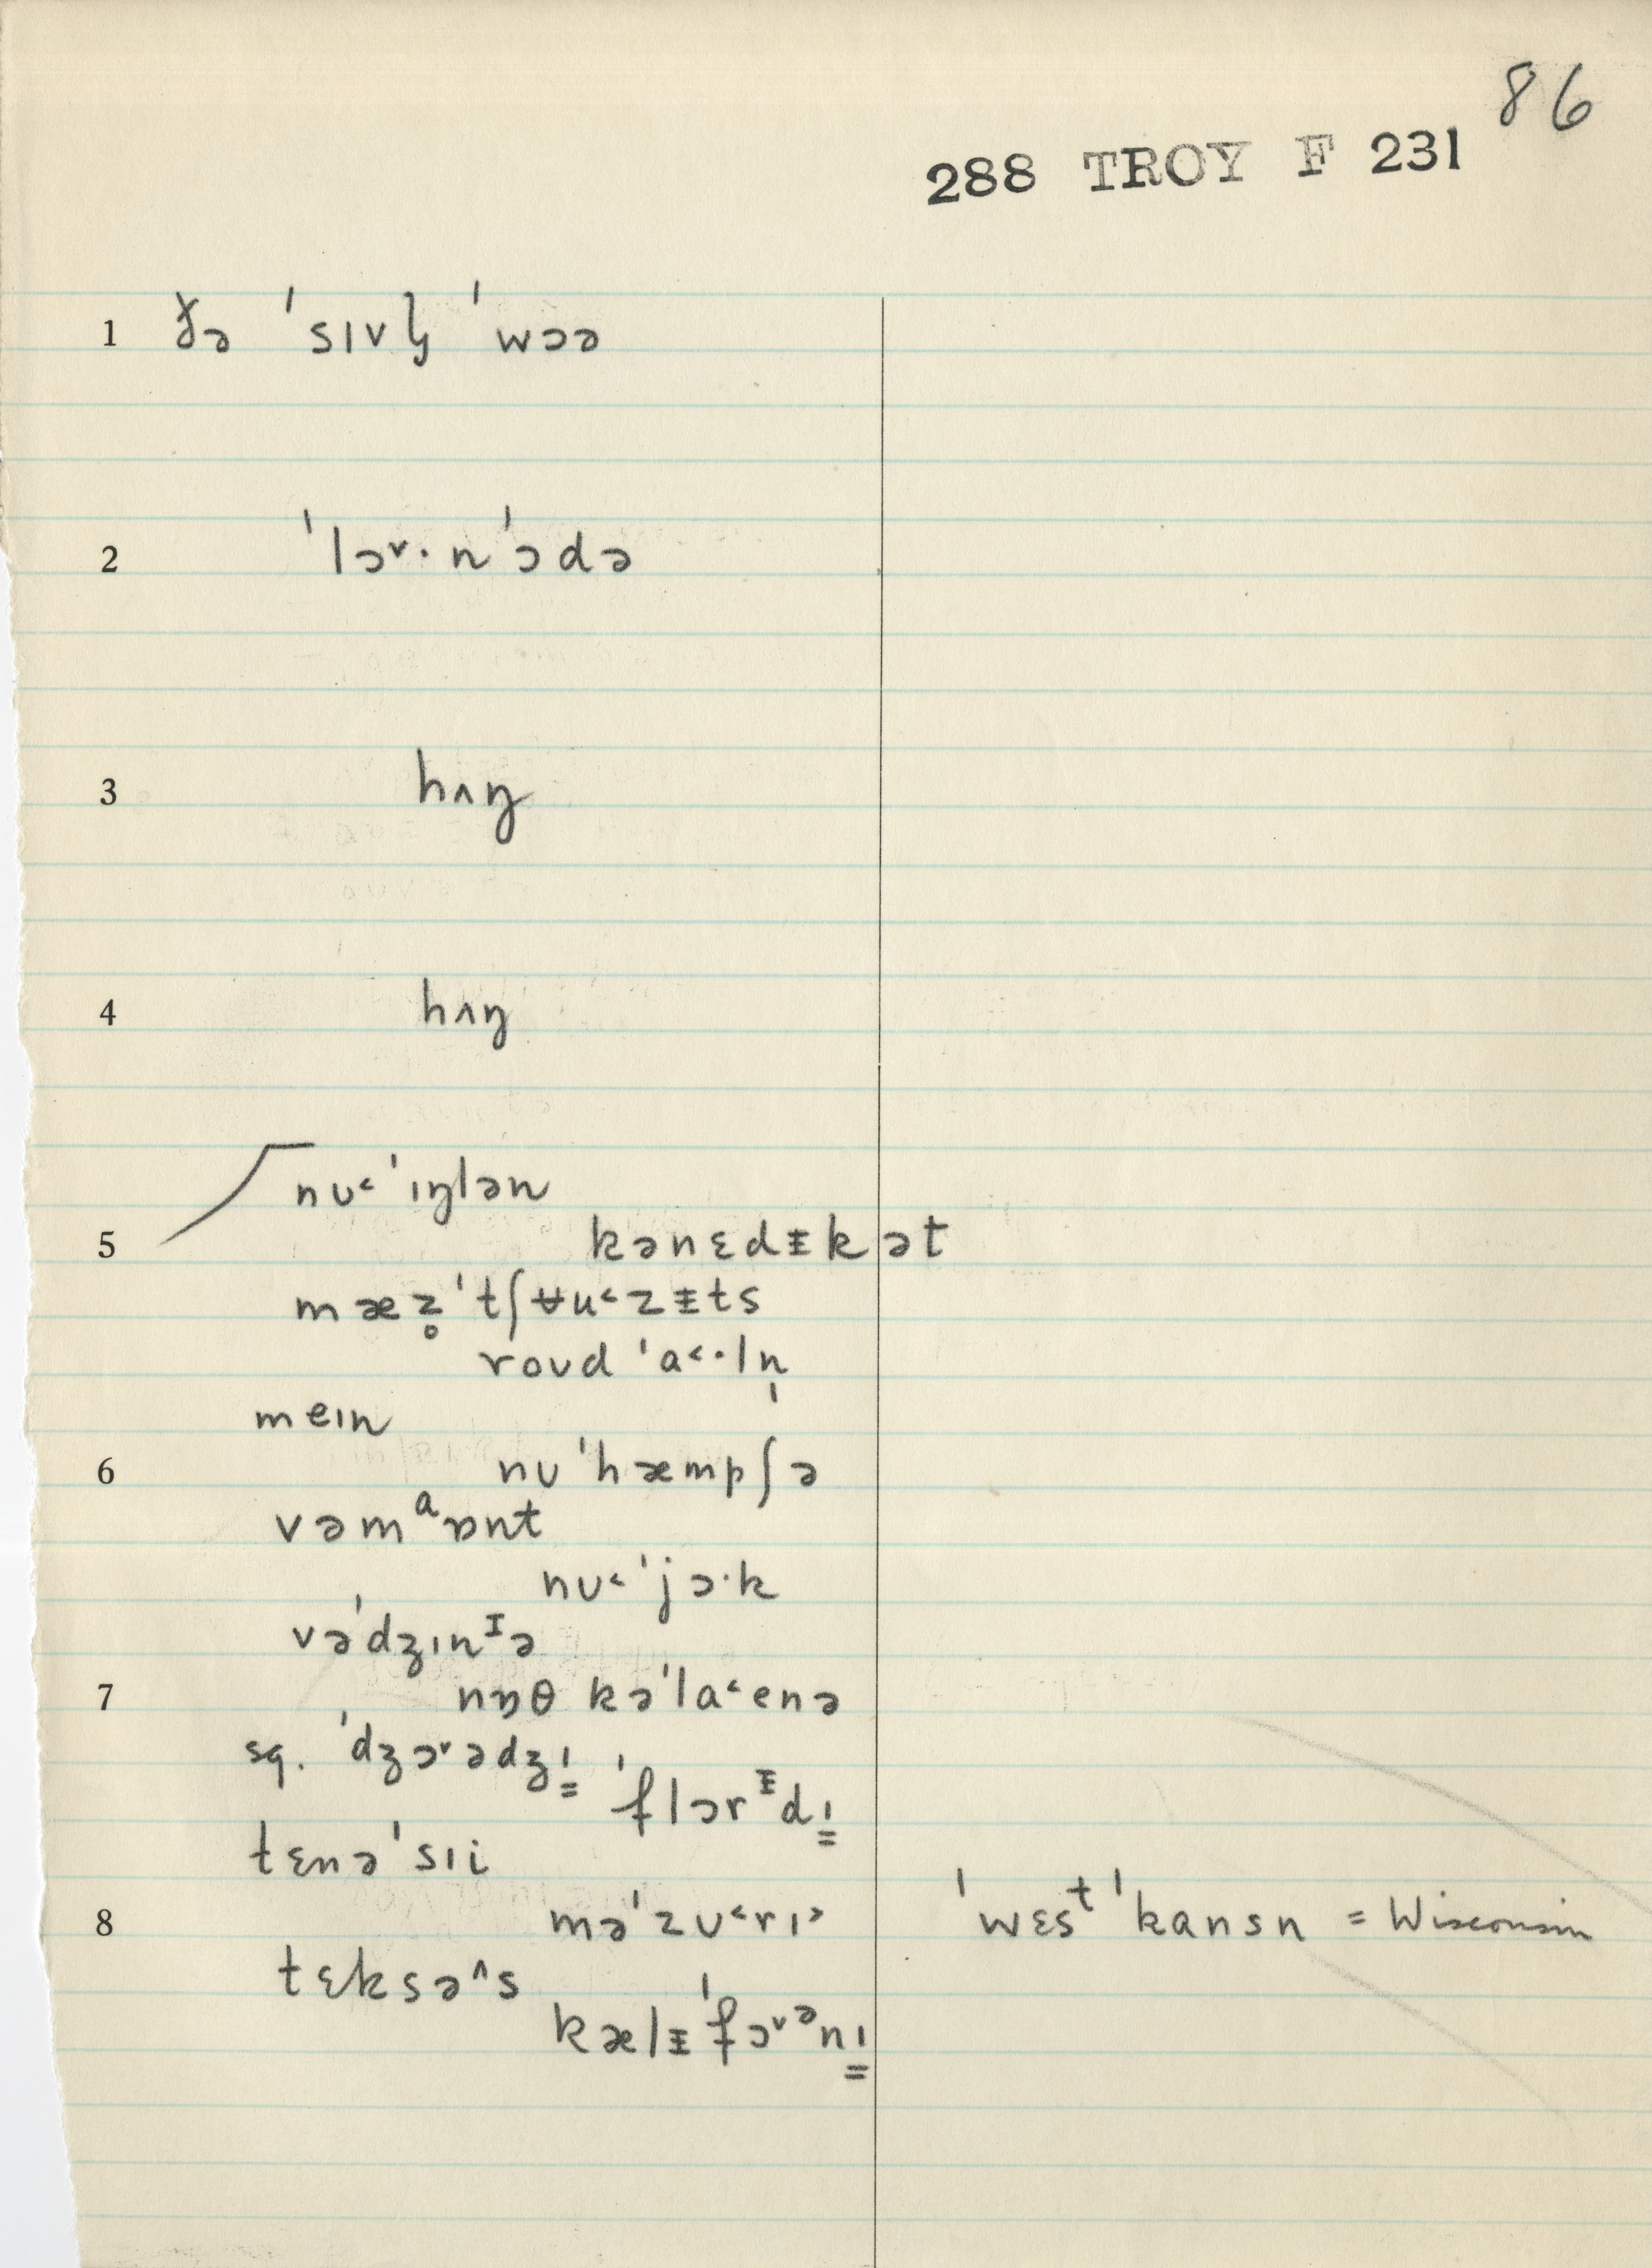 86
288 TROY F 231
1 ðə ˈsɪvl̩ ˈwɔə
2 ˈlɔ˅·nˈɔdə
3 hʌŋ
4 hʌŋ
nʊ˂ˈɪŋlən
5 kənɛdᵻkət
mæz̥ˈtʃʉu˂zᵻts
roʊd ˈa˂·ln̩
meɪn
6 nʊˈhæmpʃə
vəmᵃɒnt
nʊ˂ˈjɔ·k
vəˈdʒɪnᴵə
7 nɒθ kəˈla˂enə
sq. ˈdʒɔ˅ədʒɪ̳ ˈflɔrᵻdɪ̳
tɛnəˈsɪi
8 məˈzʊ˂rɪ˃ ˈwɛsᵗˈkansn = Wisconsin
tɛksə˄s
kælᵻˈfɔ˅ᵊnɪ̳